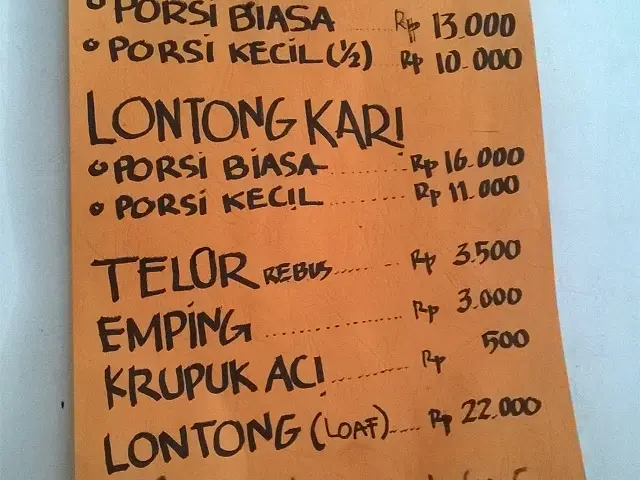 PORSI BIASA ...... Rp 13.000
PORSI KECIL (1/2) .. Rp 10.000
LONTONG KARI
PORSI BIASA ......... Rp 16.000
PORSI KECIL ......... Rp 11.000
TELOR REBUS ...... Rp 3.500
EMPING ............ Rp 3.000
KRUPUK ACI ......... Rp 500
LONTONG (LOAF) .... Rp 22.000